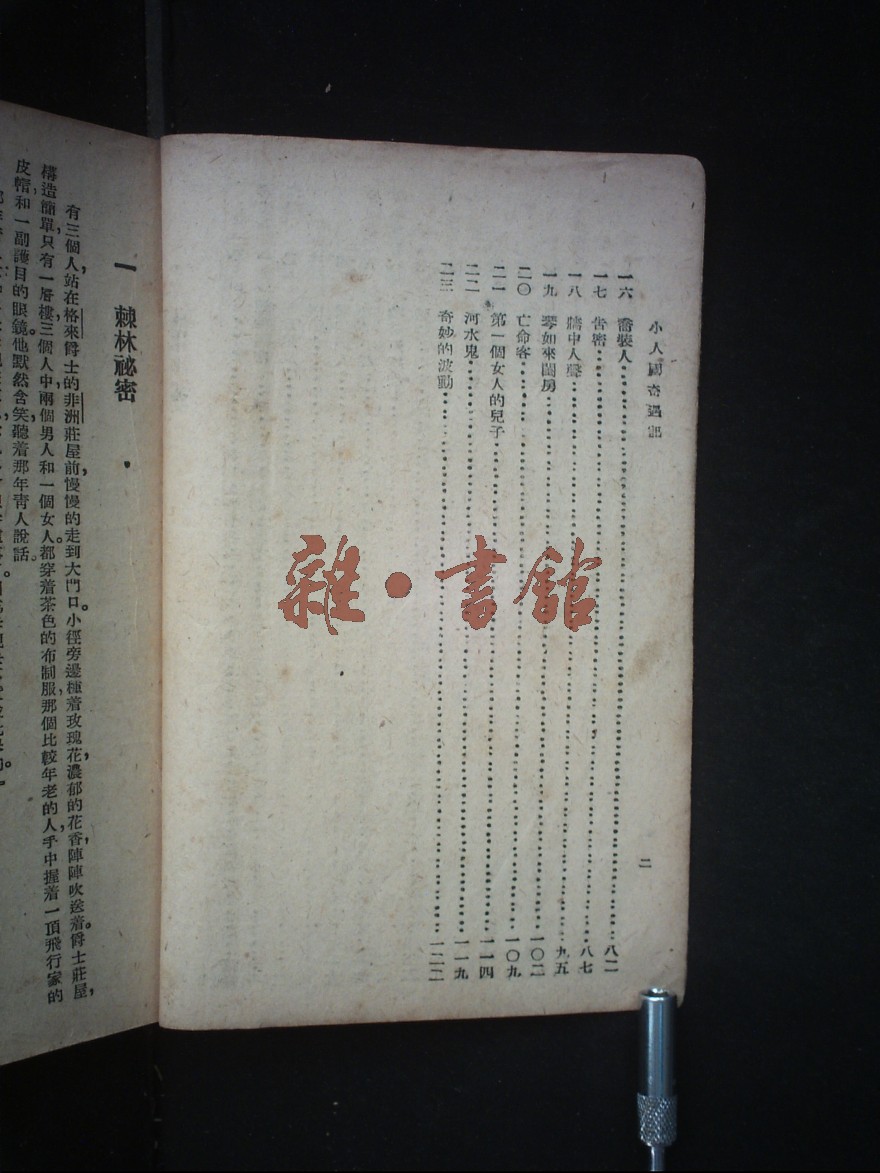 小人國奇遇記
一六 喬裝人 八二
一七 告密 八七
一八 牆中人聲 九五
一九 琴如來閨房 一〇二
二〇 亡命客 一〇九
二一 第一個女人的兒子 一一四
二二 河水鬼 一一九
二三 奇妙的波動 一二二
二
雜·書館
一 棘林祕密
有三個人，站在格來爵士的非洲莊屋前，慢慢的走到大門口。小徑旁邊種着玫瑰花，濃郁的花香，陣陣吹送着。爵士莊屋，
構造簡單，只有一層樓。三個人中，兩個男人和一個女人。都穿着茶色的布制服，那個比較年老的人，手中握着一頂飛行家的
皮帽，和一副護目的眼鏡。他默然含笑聽着那年青人說話。